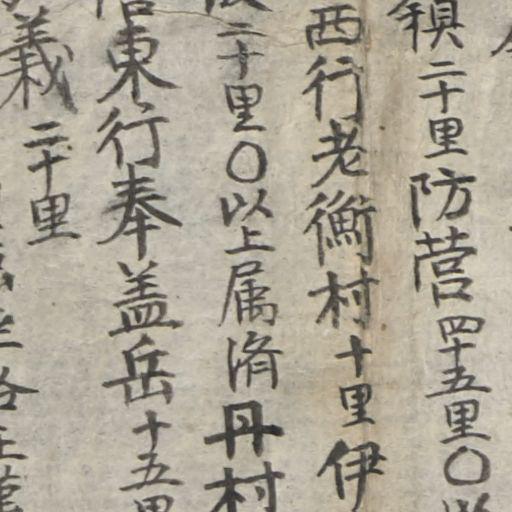 二十里防营四十五里〇
西行老衡村十里伊
二十里〇以上属消丹村
東行奉盖岳十五里
義二十里